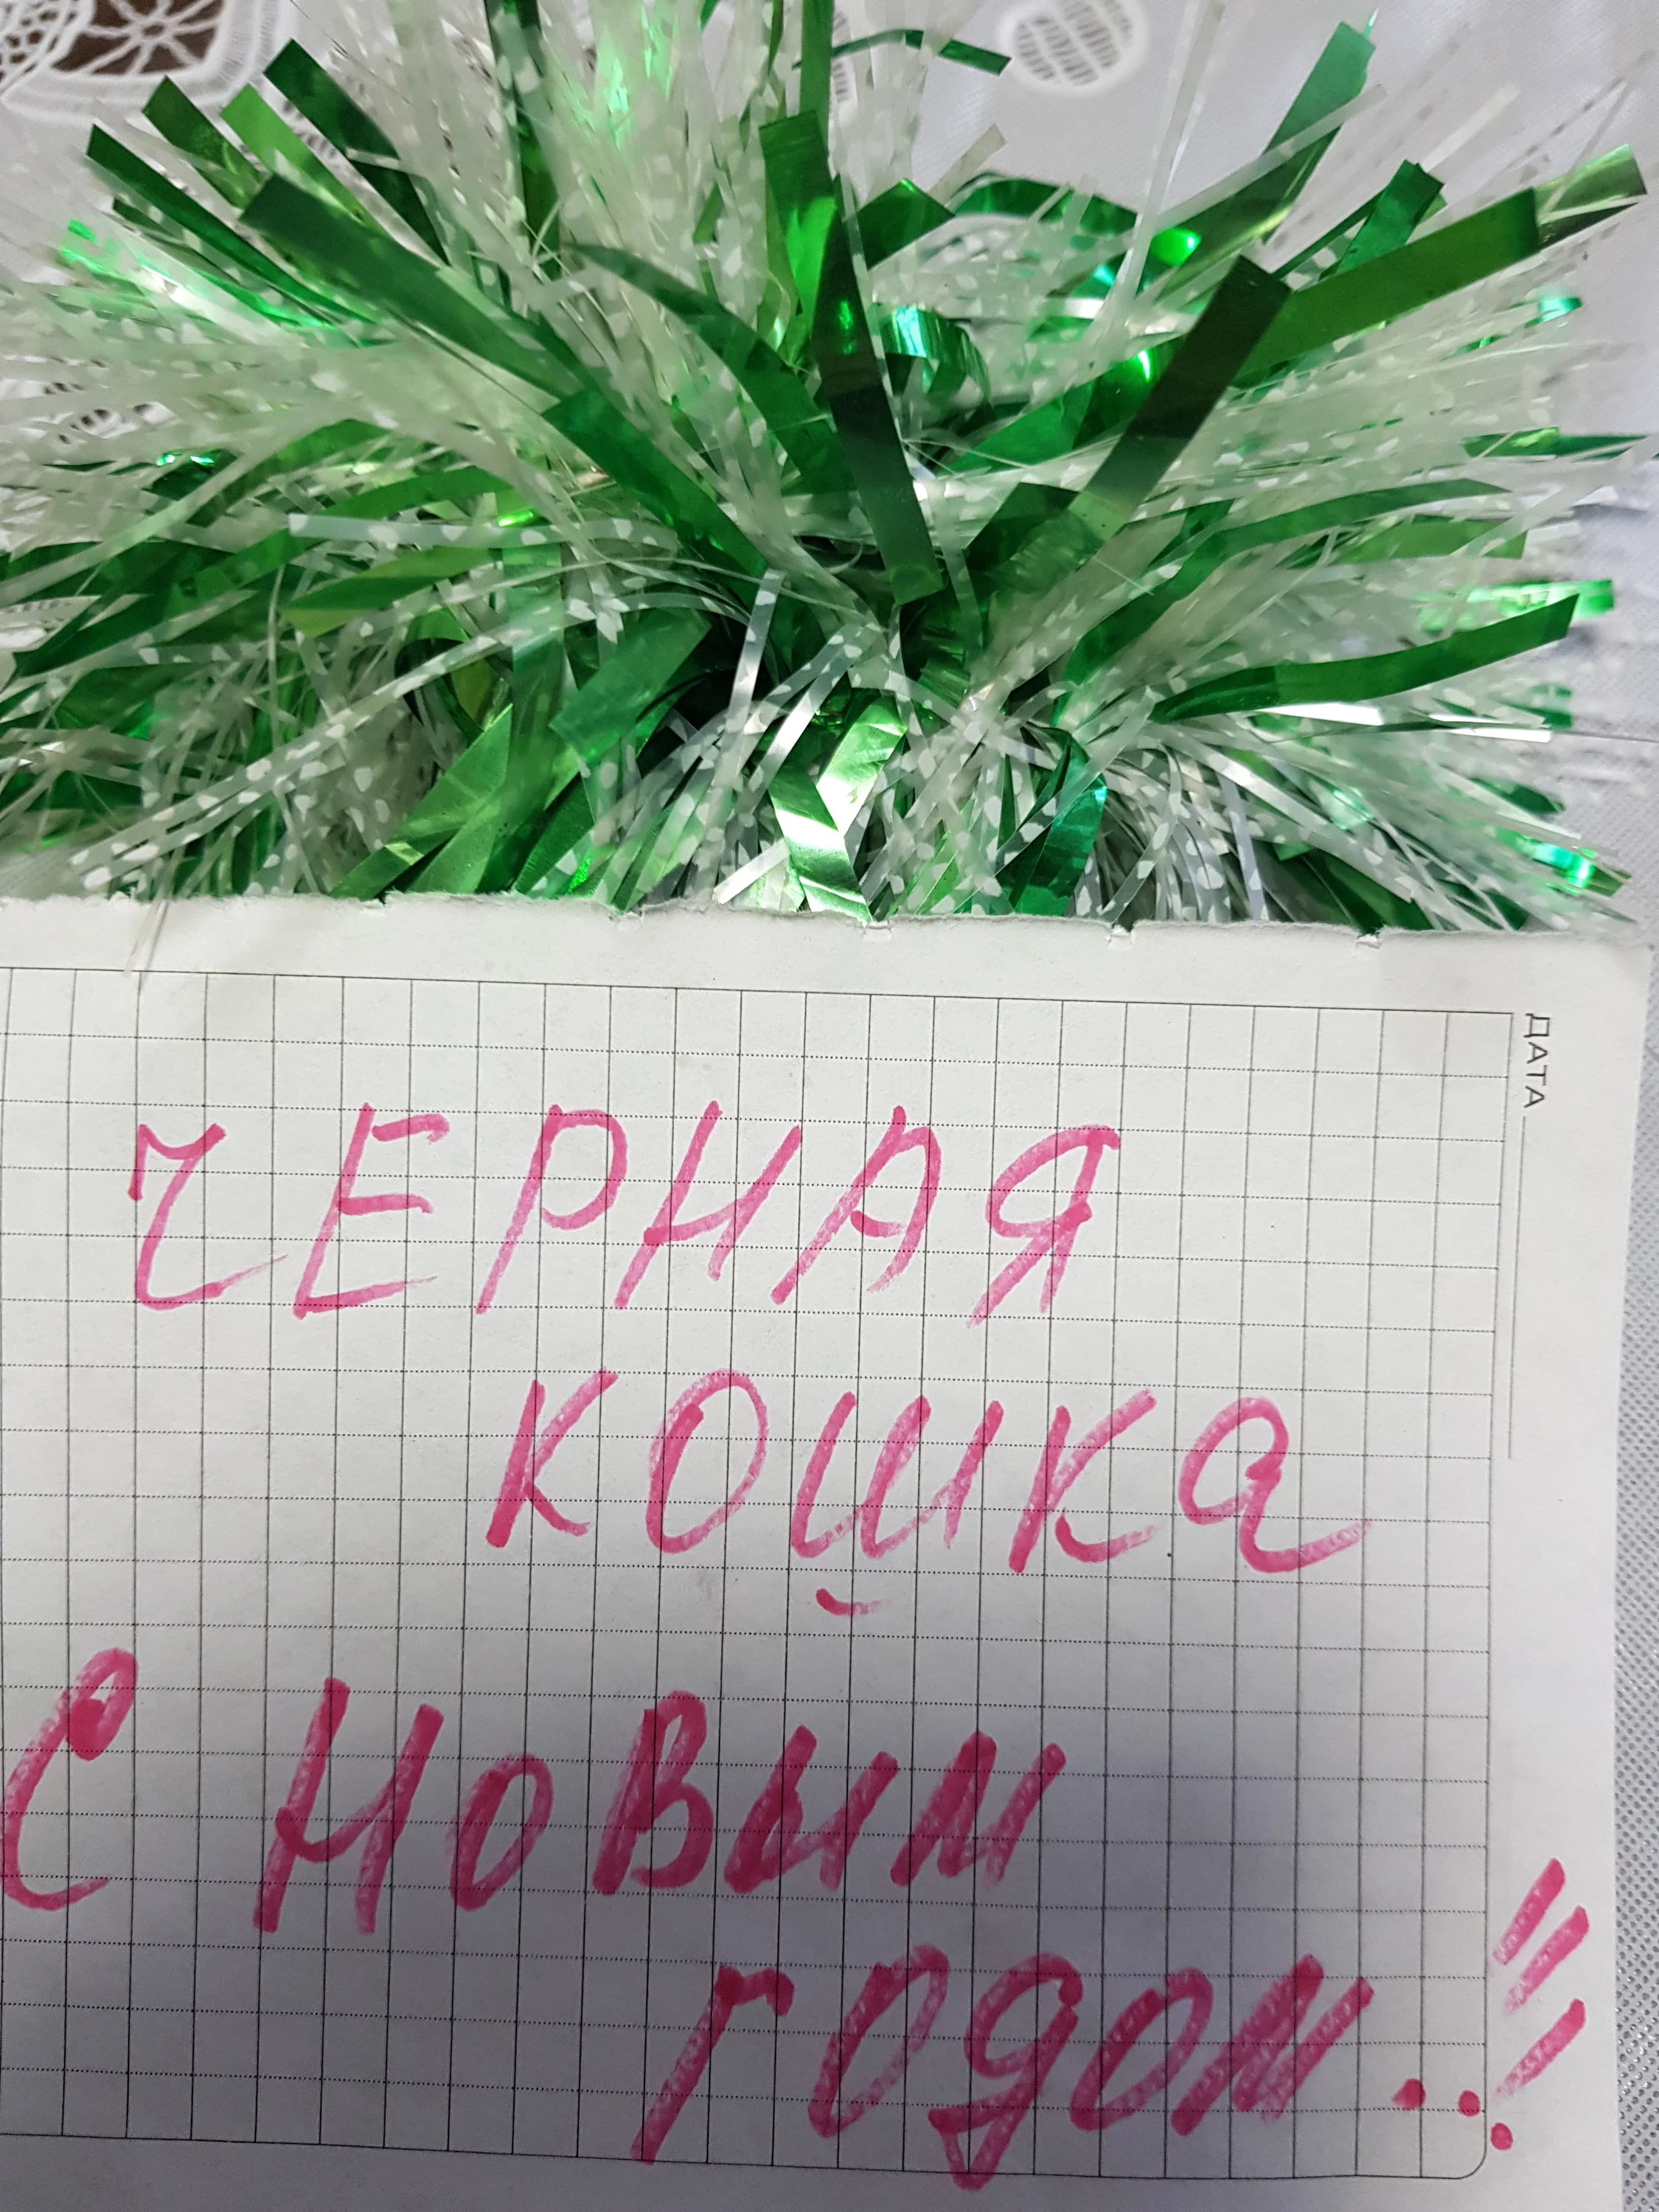 ДАТА
ЧЕРНАЯ
КОШКА
С НОВЫМ
ГОДОМ!!!